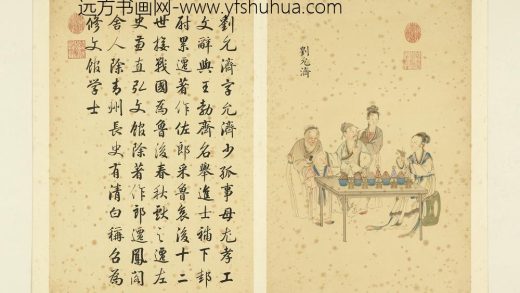 远方书画网 www.yfshuhua.com
劉允濟
劉允濟字允濟少孤事母尤孝工
文辭與王勃齊名舉進士補下邽
尉累遷著作佐郎采魯哀後十二
世接戰國為魯後春秋獻之遷左
史兼直弘文館除著作郎遷鳳閣
舍人除青州長史有清白稱召為
修文館学士